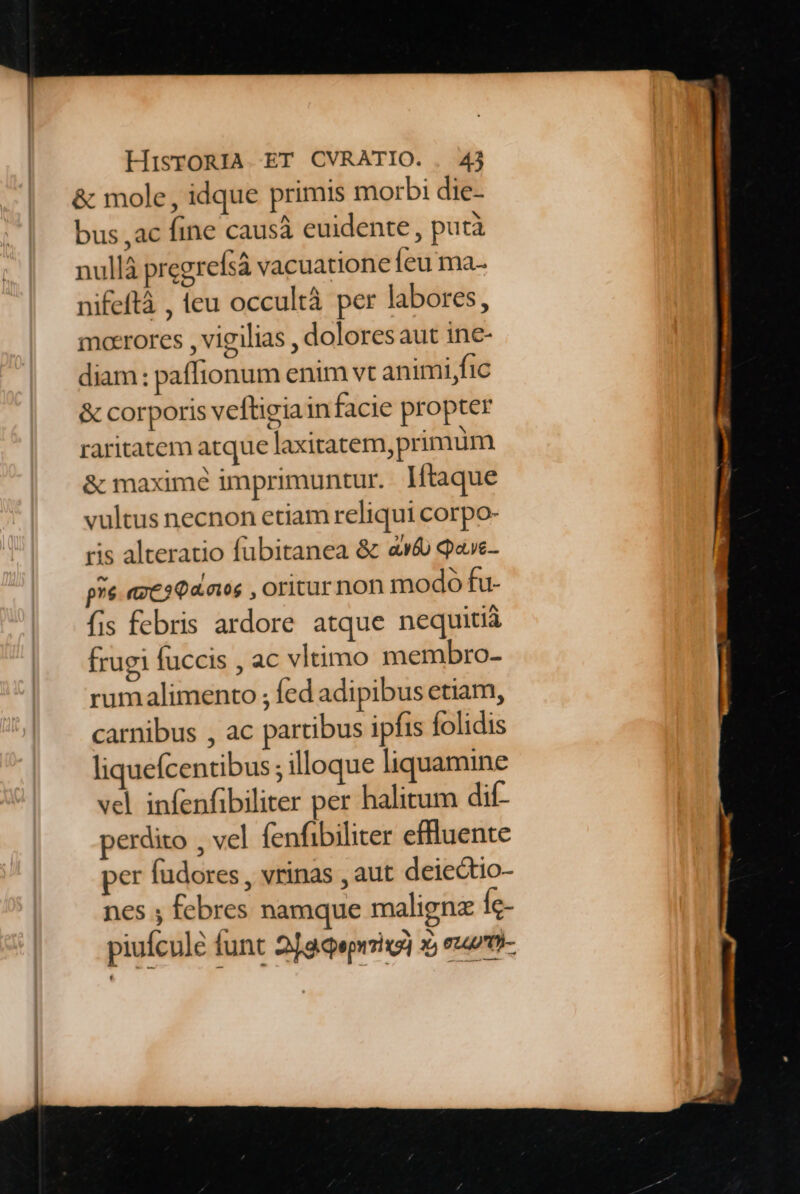 HISTORIA ET CVRATIO. 43
& mole, idque primis morbi die-
bus, ac ſine causâ euidente, putà
nullâ pregreſsâ vacuatione ſeu ma-
nifeſtâ, ſeu occultâ per labores,
mœrores, vigilias, dolores aut ine-
diam: paſſionum enim vt animi, ſic
& corporis veſtigia in facie propter
raritatem atque laxitatem, primùm
& maximè imprimuntur. Iſtaque
vultus necnon etiam reliqui corpo-
ris alteratio ſubitanea & ἄνευ φανε-
ρῆς προφάσιος, oritur non modò fu-
ſis febris ardore atque nequitiâ
frugi ſuccis, ac vltimo membro-
rum alimento; ſed adipibus etiam,
carnibus, ac partibus ipſis ſolidis
liqueſcentibus; illoque liquamine
vel inſenſibiliter per halitum diſ-
perdito, vel ſenſibiliter effluente
per ſudores, vrinas, aut deiectio-
nes; febres namque malignæ ſę-
piuſculè ſunt διαφορητικαὶ καὶ